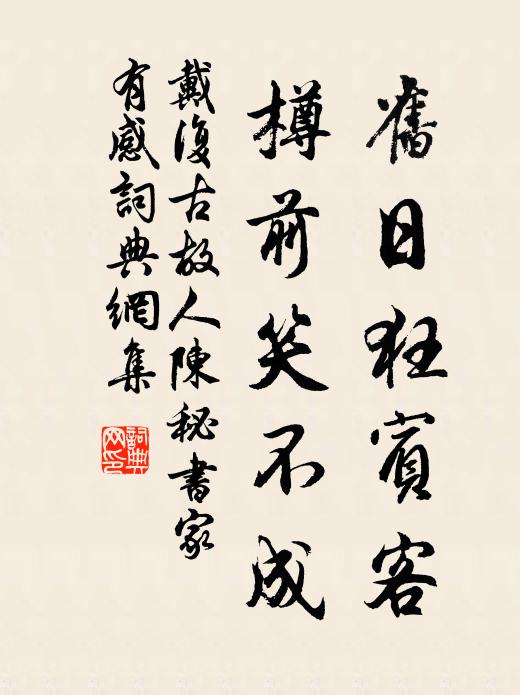 舊日狂賓客
樽前笑不成
戴復古故人陳秘書家
有感詞典網集
詞典網印